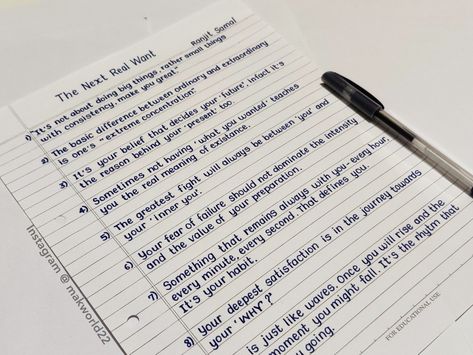 The Next Real Want
Ranjit Samal
1) It's not about doing big things, rather small things
with consistency, make you great."
2) The basic difference between ordinary and extraordinary
is one's "extreme concentration".
3) It's your belief that decides your 'future', infact it's
the reason behind your 'present' too.
4) Sometimes not having 'what you wanted' teaches
you the real meaning of existence.
5) The greatest fight will always be between 'you' and
your 'inner you'.
6) Your fear of failure should not dominate the intensity
and the value of your preparation.
7) Something that remains always with you - every hour,
every minute, every second. That defines you.
It's your habit.
8) Your deepest satisfaction is in the journey towards
your 'WHY?'
is just like waves. Once you will rise and the
moment you might fall. It's the rhytm that
you going.
FOR EDUCATIONAL USE
Instagram @ makworld22